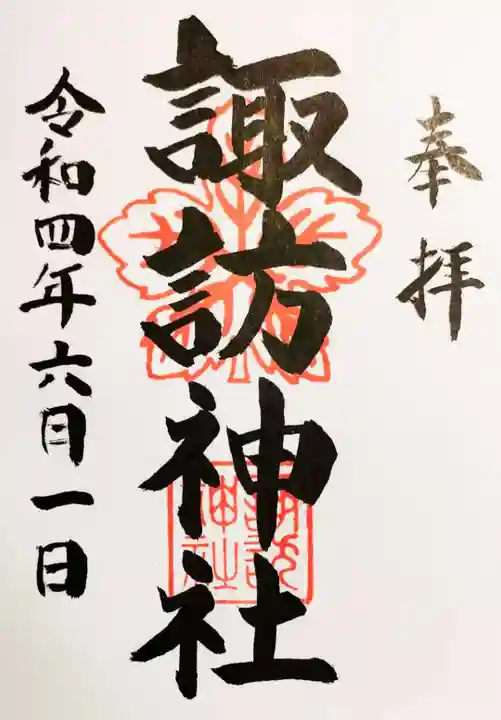 奉拝
諏訪神社
諏訪神社
令和四年六月一日